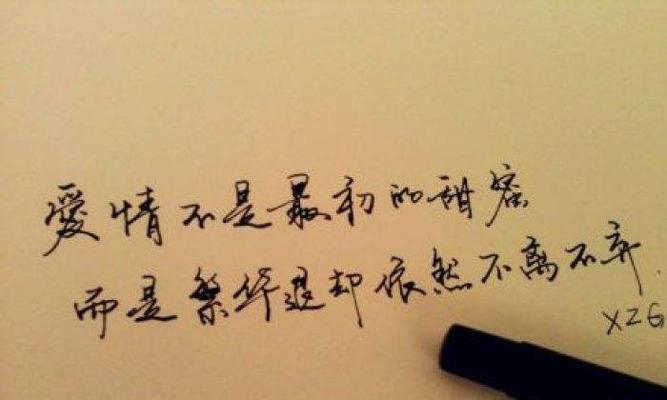 爱情不是最初的甜蜜
而是繁华退却依然不离不弃.
XZG